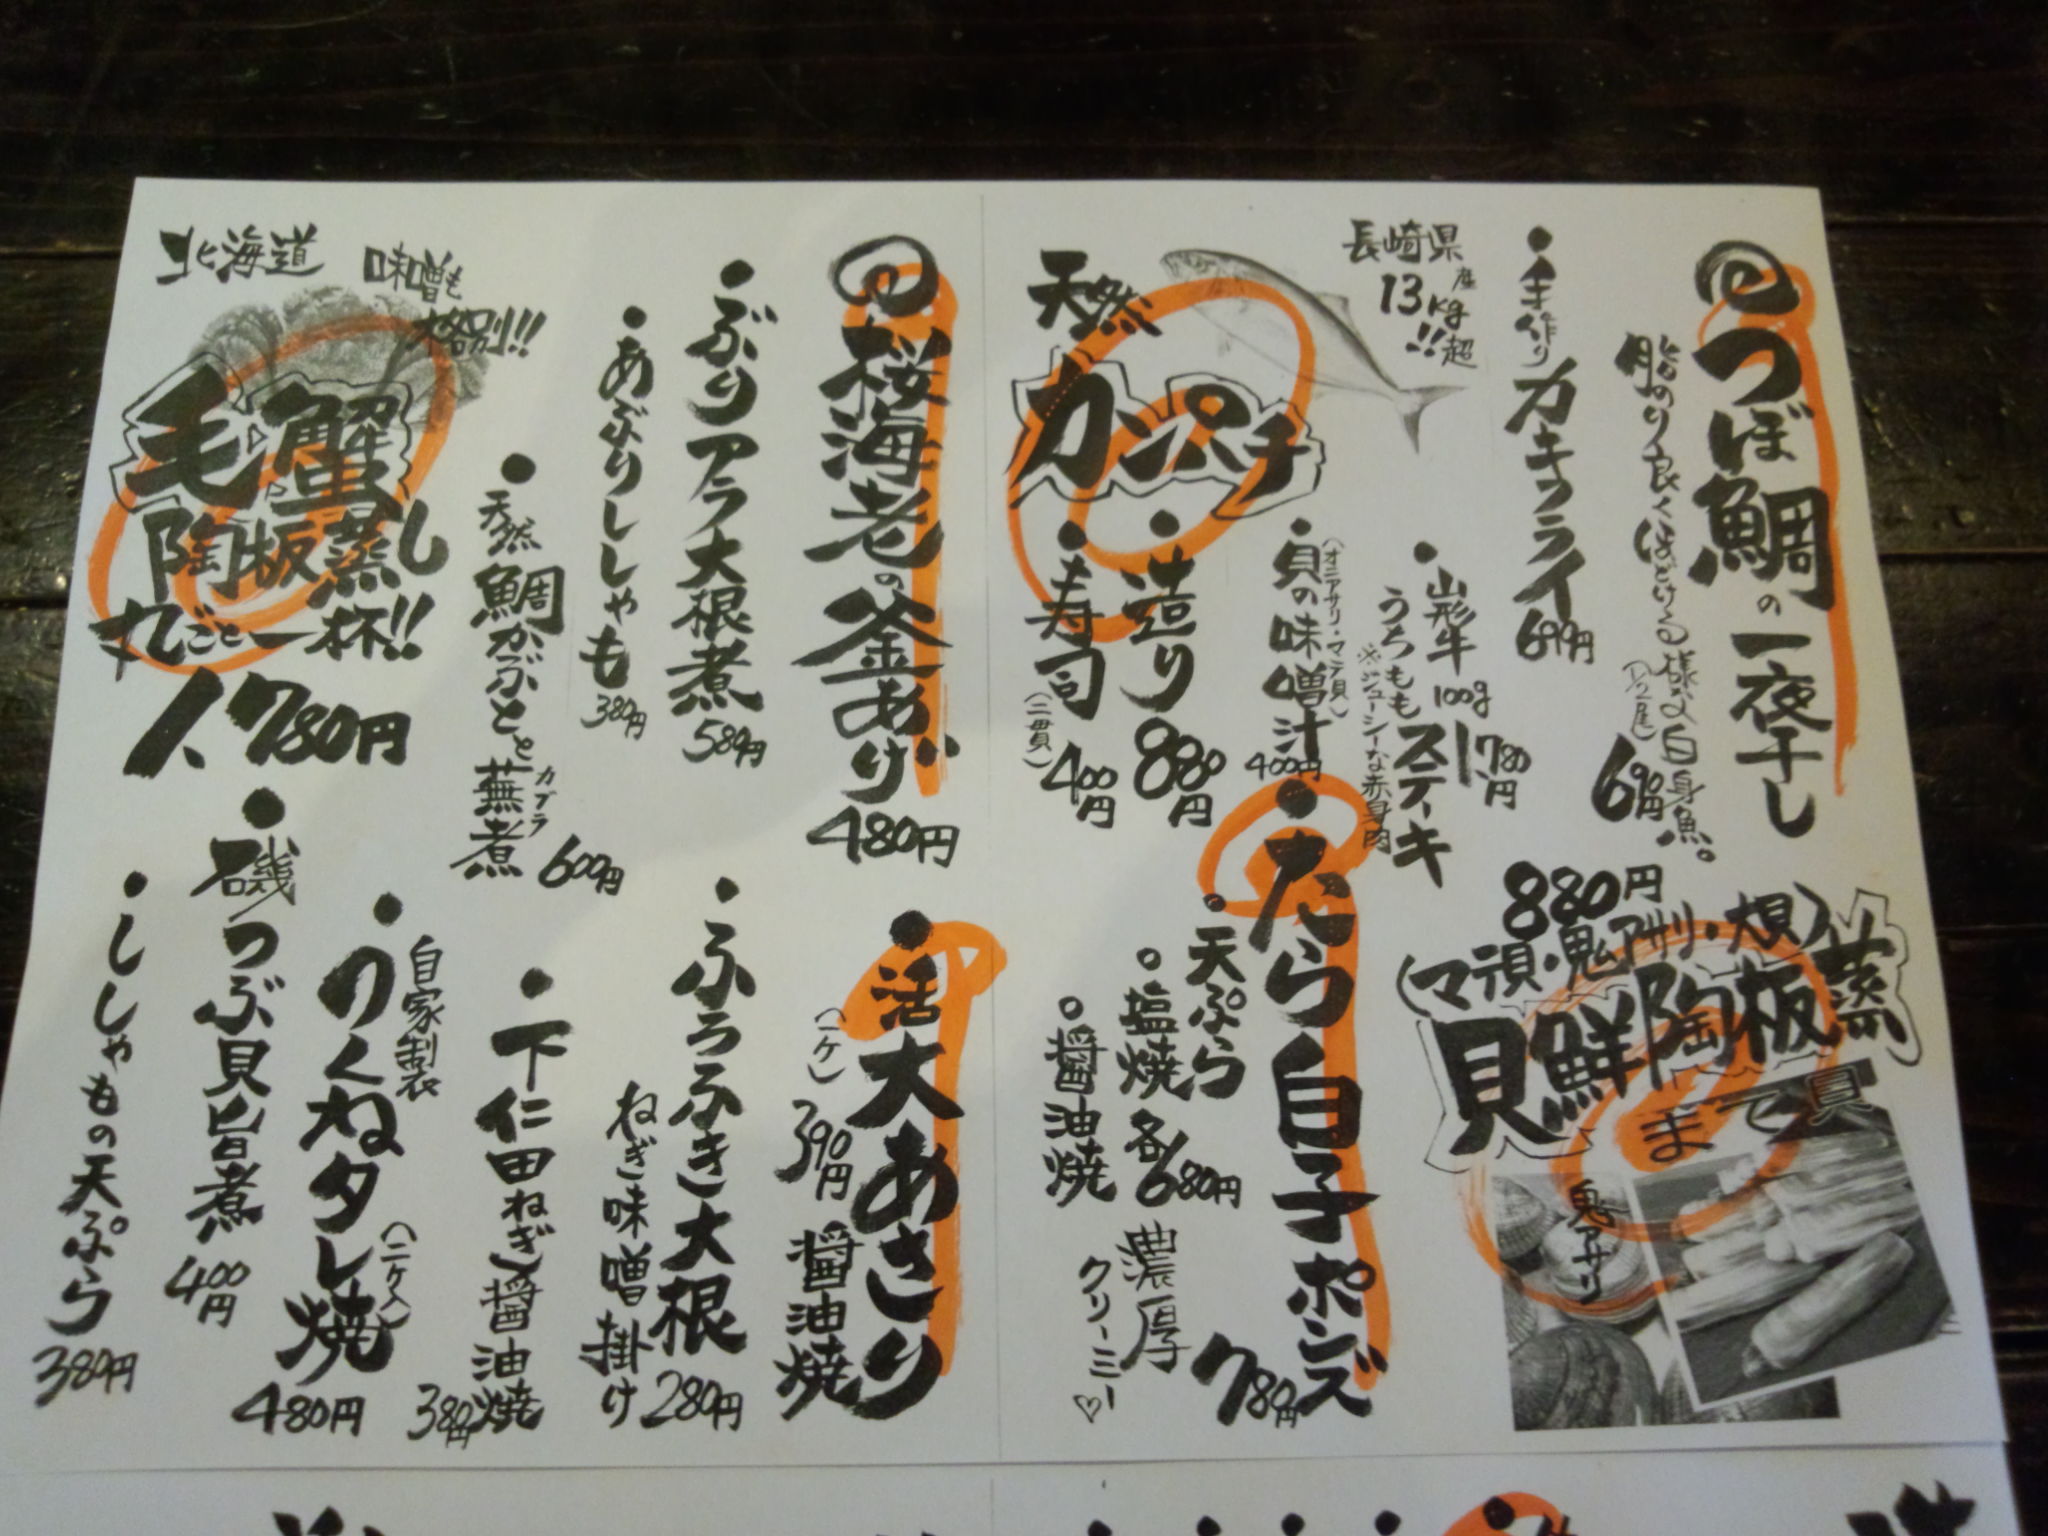 つぼ鯛の一夜干し
脂のり良くほどける様な白身魚。
(1/2尾)
690円
手作りカキフライ
699円
長崎県産
13kg超!!
天然
カンパチ
造り
880円
寿司
(二貫)
400円
貝の味噌汁
(オニアサリ・マテ貝)
400円
山形牛
うちももステーキ
100g
1780円
※ジューシーな赤身肉
880円
貝鮮陶板蒸
まて貝
鬼アサリ
たら白子ポンズ
780円
天ぷら
塩焼
各680円
醤油焼
濃厚
クリーミー♡
桜海老の釜あげ
480円
ぶりアラ大根煮
580円
あぶりししゃも
380円
天然鯛かぶとと蕪煮
カブラ
600円
北海道
味噌も
格別!!
毛蟹
陶板蒸し
丸ごと一杯!!
1、780円
活大あさり
(一ケ)
390円
醤油焼
ふろふき大根
ねぎ味噌掛け
280円
下仁田ねぎ醤油焼
380円
自家製
つくねタレ焼
(二ケ入)
480円
磯つぶ貝旨煮
400円
ししゃもの天ぷら
380円